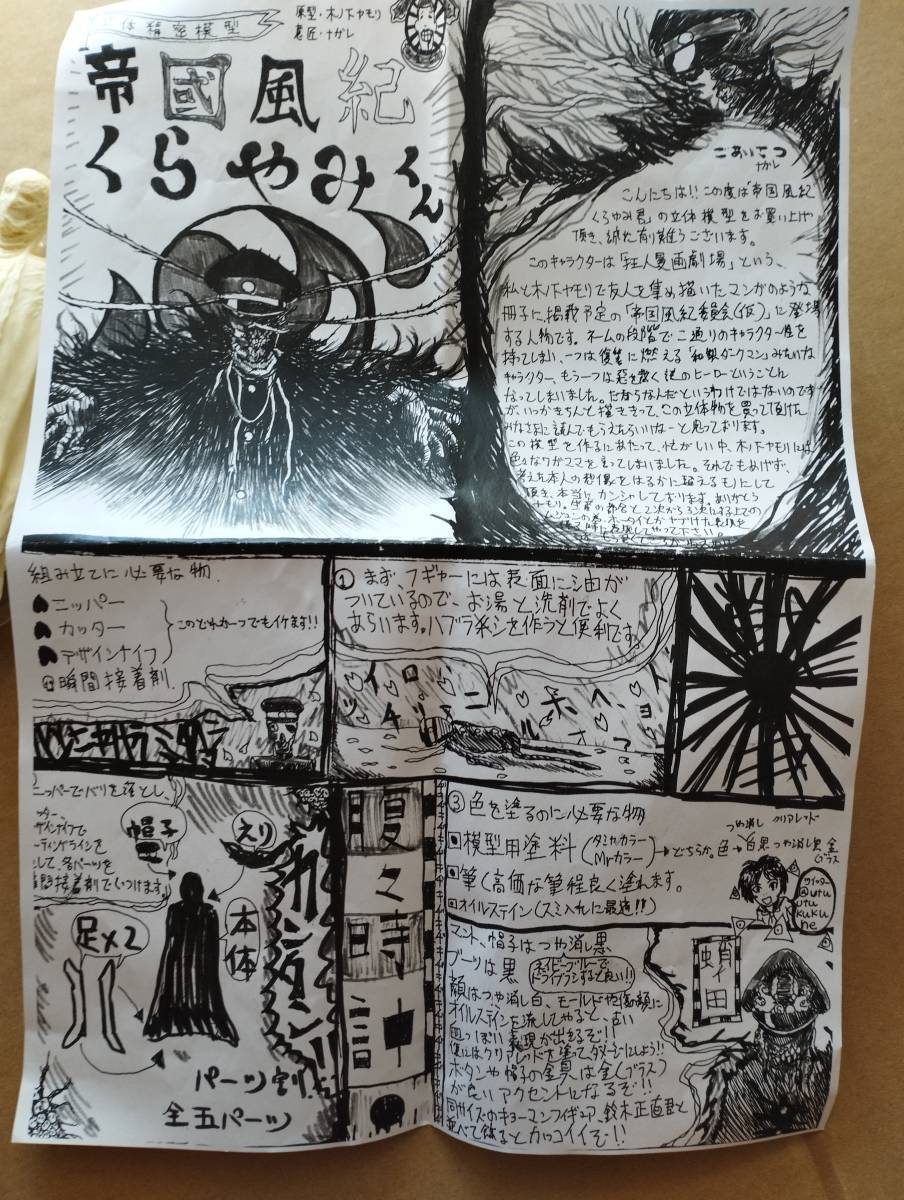 立体精密模型
原型・木ノ下ヤモリ
意匠・ナガレ
帝國風紀
くらやみくん
ごあいさつ
ナガレ
こんにちは!!この度は「帝国風紀
くらやみ君」の立体模型をお買い上げ
頂き、誠に有り難うございます。
このキャラクターは「狂人漫画劇場」という、
私と木ノ下ヤモリで友人を集め描いたマンガのような
冊子に、掲載予定の「帝国風紀委員会(仮)」に登場
する人物です。ネームの段階で二通りのキャラクター性を
持てしまい、一つは復讐に燃える「和製ダークマン」みたいな
キャラクター、もう一つは悪を裁く謎のヒーローということに
なってしまいました。だからなんだというわけではないのです
が、いつかきちんと描ききって、この立体物を買って頂けた
みなさまに読んでもらえたらいいなーと思っております。
この模型を作るにあたって、忙がしい中、木ノ下ヤモリには
色々なワガママを言ってしまいました。それでもめげず、
考えた本人の想像をはるかに超えるものにして
頂き、本当にカンシャしております。ありがとう
ヤモリ。
組み立てに必要な物.
ニッパー
カッター
デザインナイフ
このどれか一つでもイケます!!
瞬間接着剤.
①まず、フギャーには表面に油が
ついているので、お湯と洗剤でよく
あらいます。ハブラシを使うと便利です。
ニッパーでバリを落とし、
デザインナイフで
パーティングラインを
して、各パーツを
瞬間接着剤でくっつけます。
帽子
えり
足×2
本体
カンタン!!
パーツ割!
全五パーツ
腹々時計
③色を塗るのに必要な物
模型用塗料(タミヤカラー Mr.カラー)→どちらか。
色→白 黒 つや消し黒 金
つや消し クリアレッド
(ブラス)
筆(高価な筆程良く塗れます。
オイルステイン(スミ入れに最適!!)
ツイッター
@utu
utu
kuku
ne
マント、帽子はつや消し黒
ブーツは黒
ネイビーブルーで
ドライブラシすると良い!!
顔はつや消し白、モールドや傷の類に
オイルステインを流してやると、古い
面っぽい表現が出るぞ!!
傷にはクリアレッドを塗ってダメージにしよう!!
ボタンや帽子の金具は金(ブラス)
が良いアクセントになるぞ!!
同サイズのキョーマンフィギュア、鈴木正直君と
並べて飾るとカッコイイぞ!!